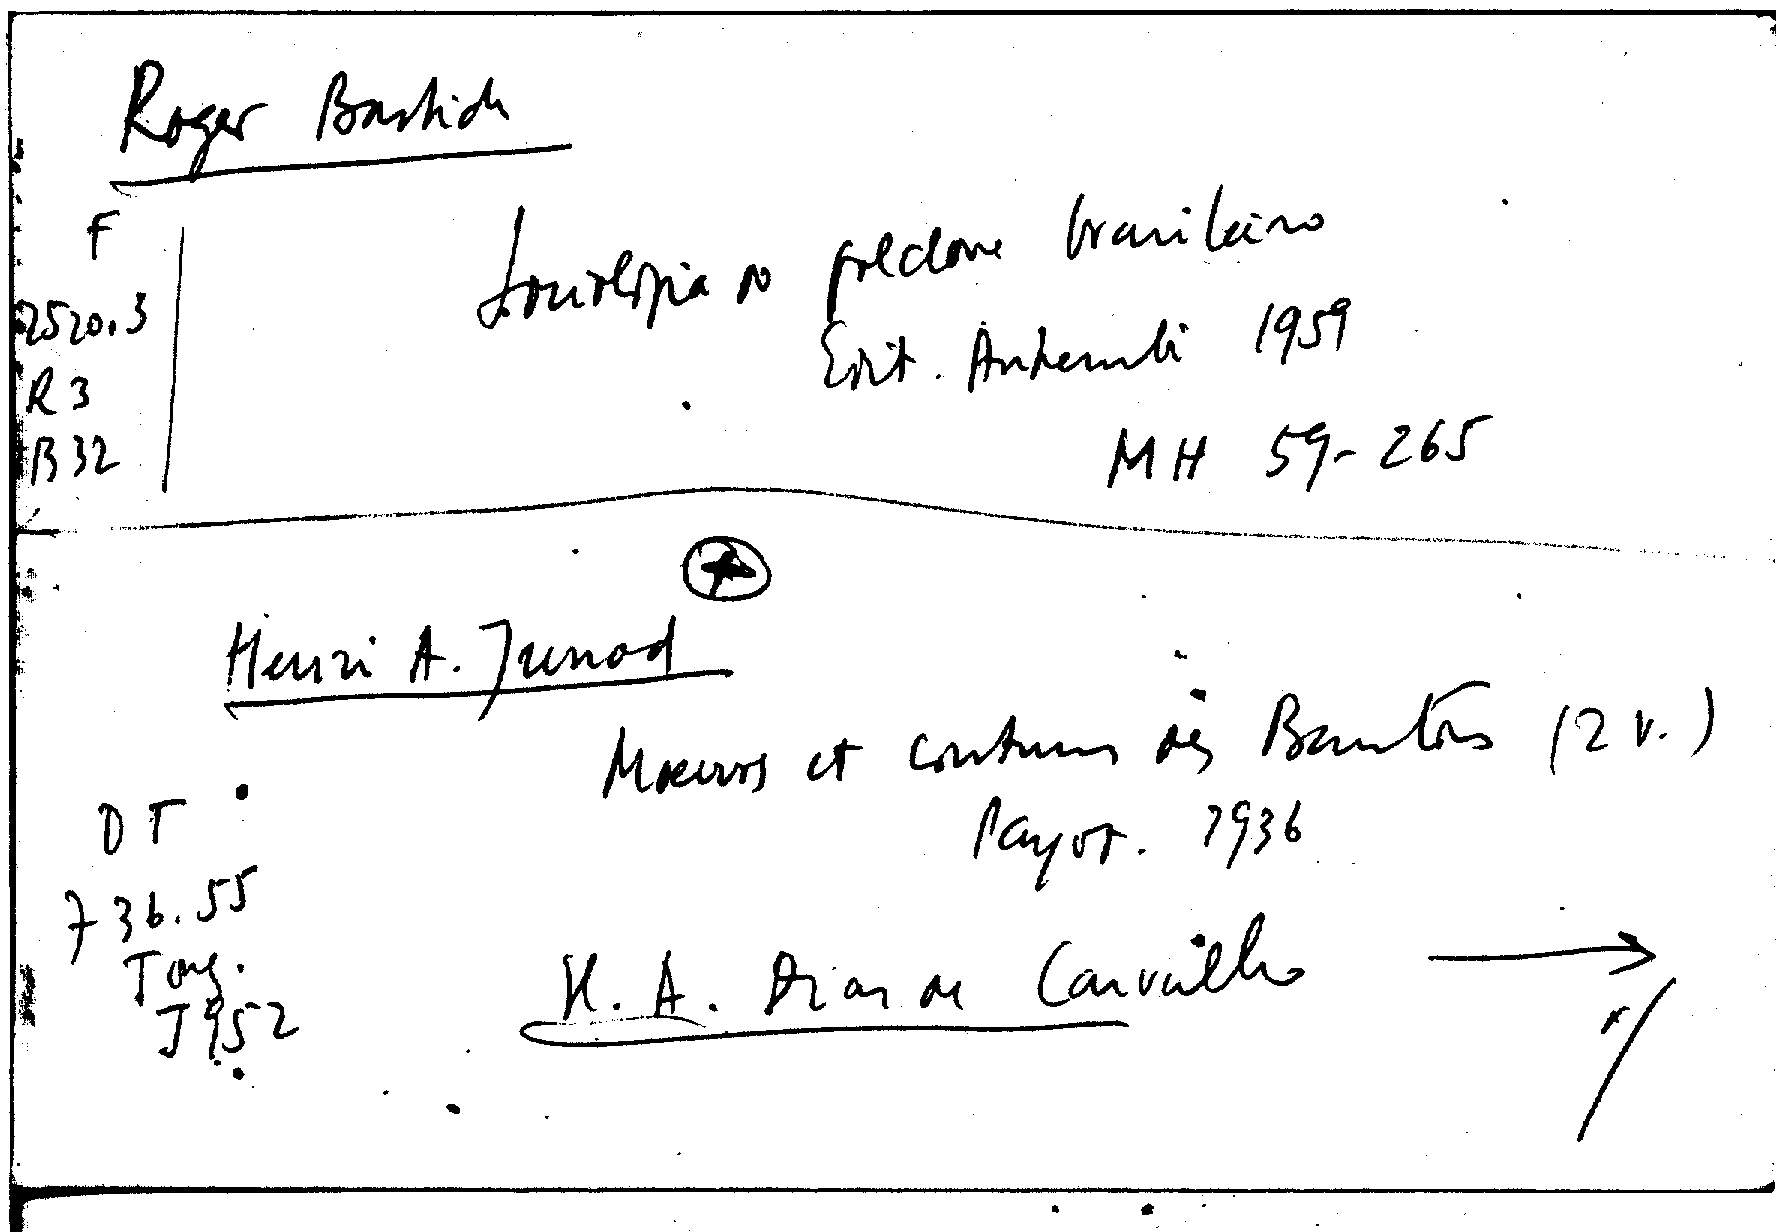 Roger Bastide
F
2520.3
R3
B32
Sociologia do folclore brasileiro
Edit. Anhembi 1959
MH 59-265
Henri A. Junod
Moeurs et coutumes des Bantous (2 v.)
Payot. 1936
DT
736.55
J952
H. A. Dias de Carvalho